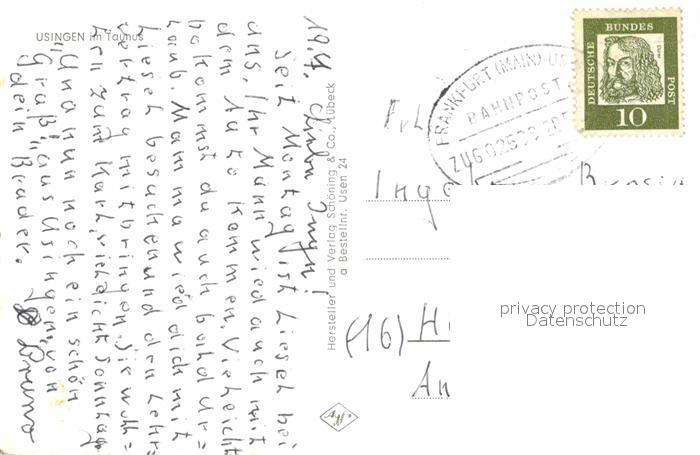 USINGEN im Taunus
19.4.
Liebe Ingrn!
Seit Montag ist Liesel bei
uns. Ihr Mann wied auch mit
dem Auto kommen. Vieleicht
bekommst du auch bald Ur=
laub. Mamma wied dich mit
Liesel besuchen und den Lehr=
vertrag mitbringen. Sie wohl=
len zum Markt, vieleicht Sonntag
"Und nun noch ein schön
Gruß" aus Usingen, von
dein Bruder. Bruno
Hersteller und Verlag Schöning & Co., Lübeck
a Bestellnr. Usen 24
FRANKFURT (MAIN)
BAHNPOST
ZUG
DEUTSCHE BUNDES POST
10
Frl.
Inge
(16) H
An
privacy protection
Datenschutz